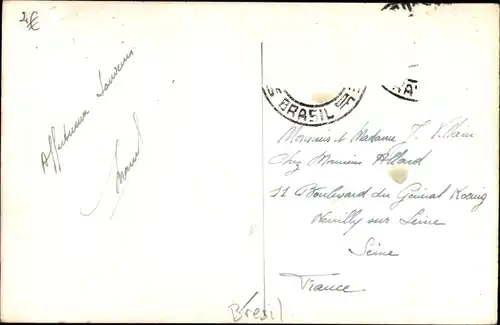 2€
Affectueux Souvenir
Marcel
BRASIL
DF
Monsieur et Madame J. Villain
Chez Monsieur Allard
11 Boulevard du Général Kœnig
Neuilly sur Seine
Seine
France
Brésil